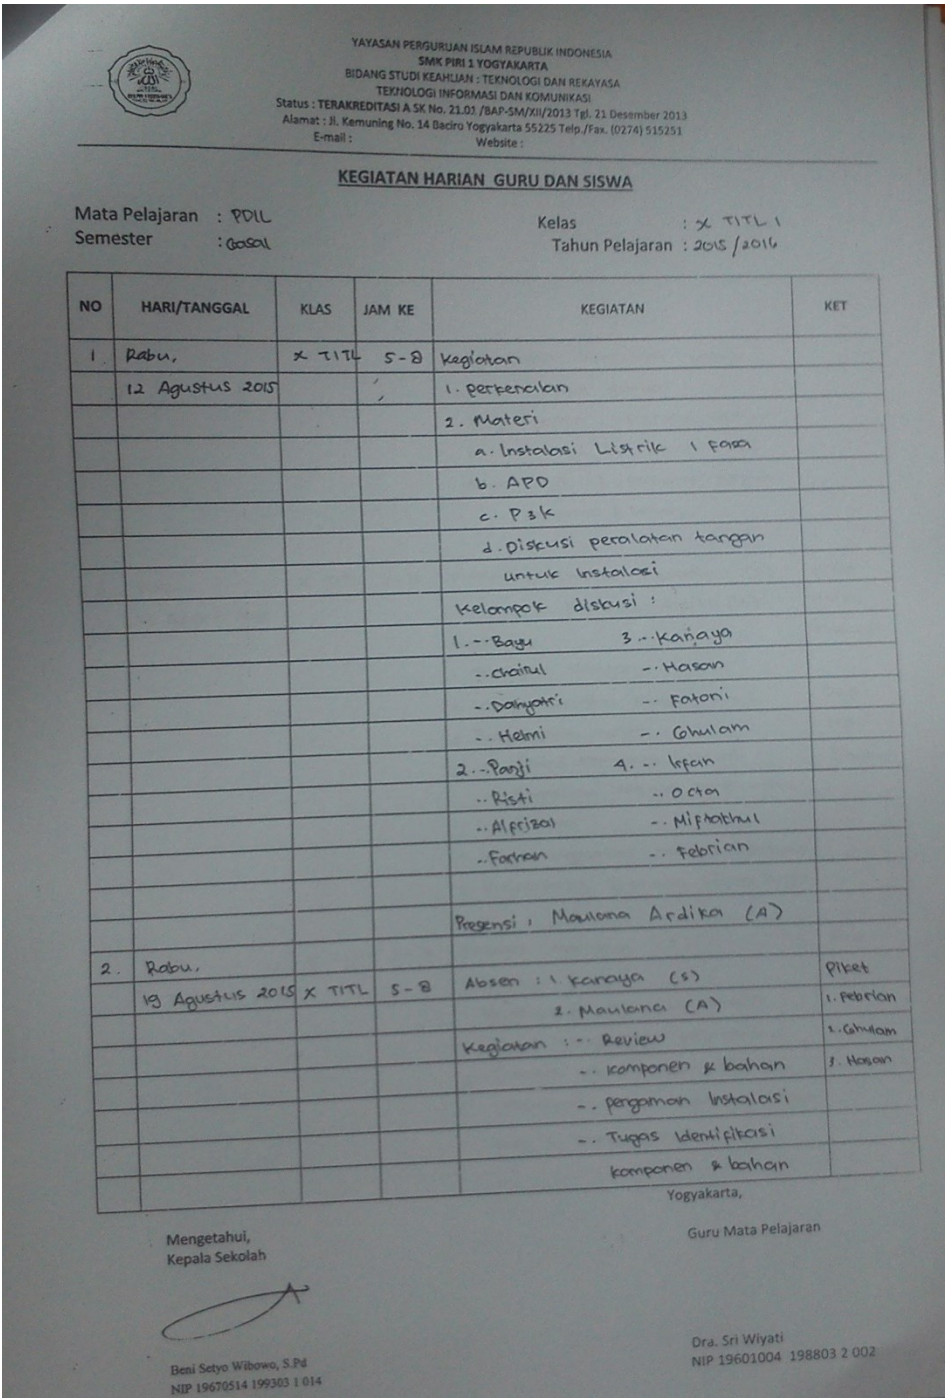 YAYASAN PERGURUAN ISLAM REPUBLIK INDONESIA
SMK PIRI 1 YOGYAKARTA
BIDANG STUDI KEAHLIAN : TEKNOLOGI DAN REKAYASA
TEKNOLOGI INFORMASI DAN KOMUNIKASI
Status : TERAKREDITASI A SK No. 21.01 /BAP-SM/XII/2013 Tgl. 21 Desember 2013
Alamat : Jl. Kemuning No. 14 Baciro Yogyakarta 55225 Telp./Fax. (0274) 515251
E-mail : Website :
KEGIATAN HARIAN GURU DAN SISWA
Mata Pelajaran : PDIL Kelas : X TITL 1
Semester : Gasal Tahun Pelajaran : 2015/2016
NO HARI/TANGGAL KLAS JAM KE KEGIATAN KET
1. Rabu, X TITL 5-8 Kegiatan
12 Agustus 2015 1. Perkenalan
2. Materi
a. Instalasi Listrik 1 Fasa
b. APD
c. P3K
d. Diskusi peralatan tangan
untuk Instalasi
Kelompok diskusi :
1. -. Bayu 3. -. Kanaya
-. Chairul -. Hasan
-. -. Fatoni
-. Helmi -. Ghulam
2. -. Panji 4. -. Irfan
-. Risti -. Octa
-. Alfrizal -. Miftakhul
-. Farhan -. Febrian
Presensi : Maulana Ardika (A)
2. Rabu, Absen : 1. Kanaya (S) Piket
19 Agustus 2015 X TITL 5-8 2. Maulana (A) 1. Febrian
Kegiatan : -. Review 2. Ghulam
-. Komponen & bahan 3. Hasan
-. pengaman Instalasi
-. Tugas Identifikasi
komponen & bahan
Yogyakarta,
Mengetahui, Guru Mata Pelajaran
Kepala Sekolah
Beni Setyo Wibowo, S.Pd Dra. Sri Wiyati
NIP 19670514 199303 1 014 NIP 19601004 198803 2 002